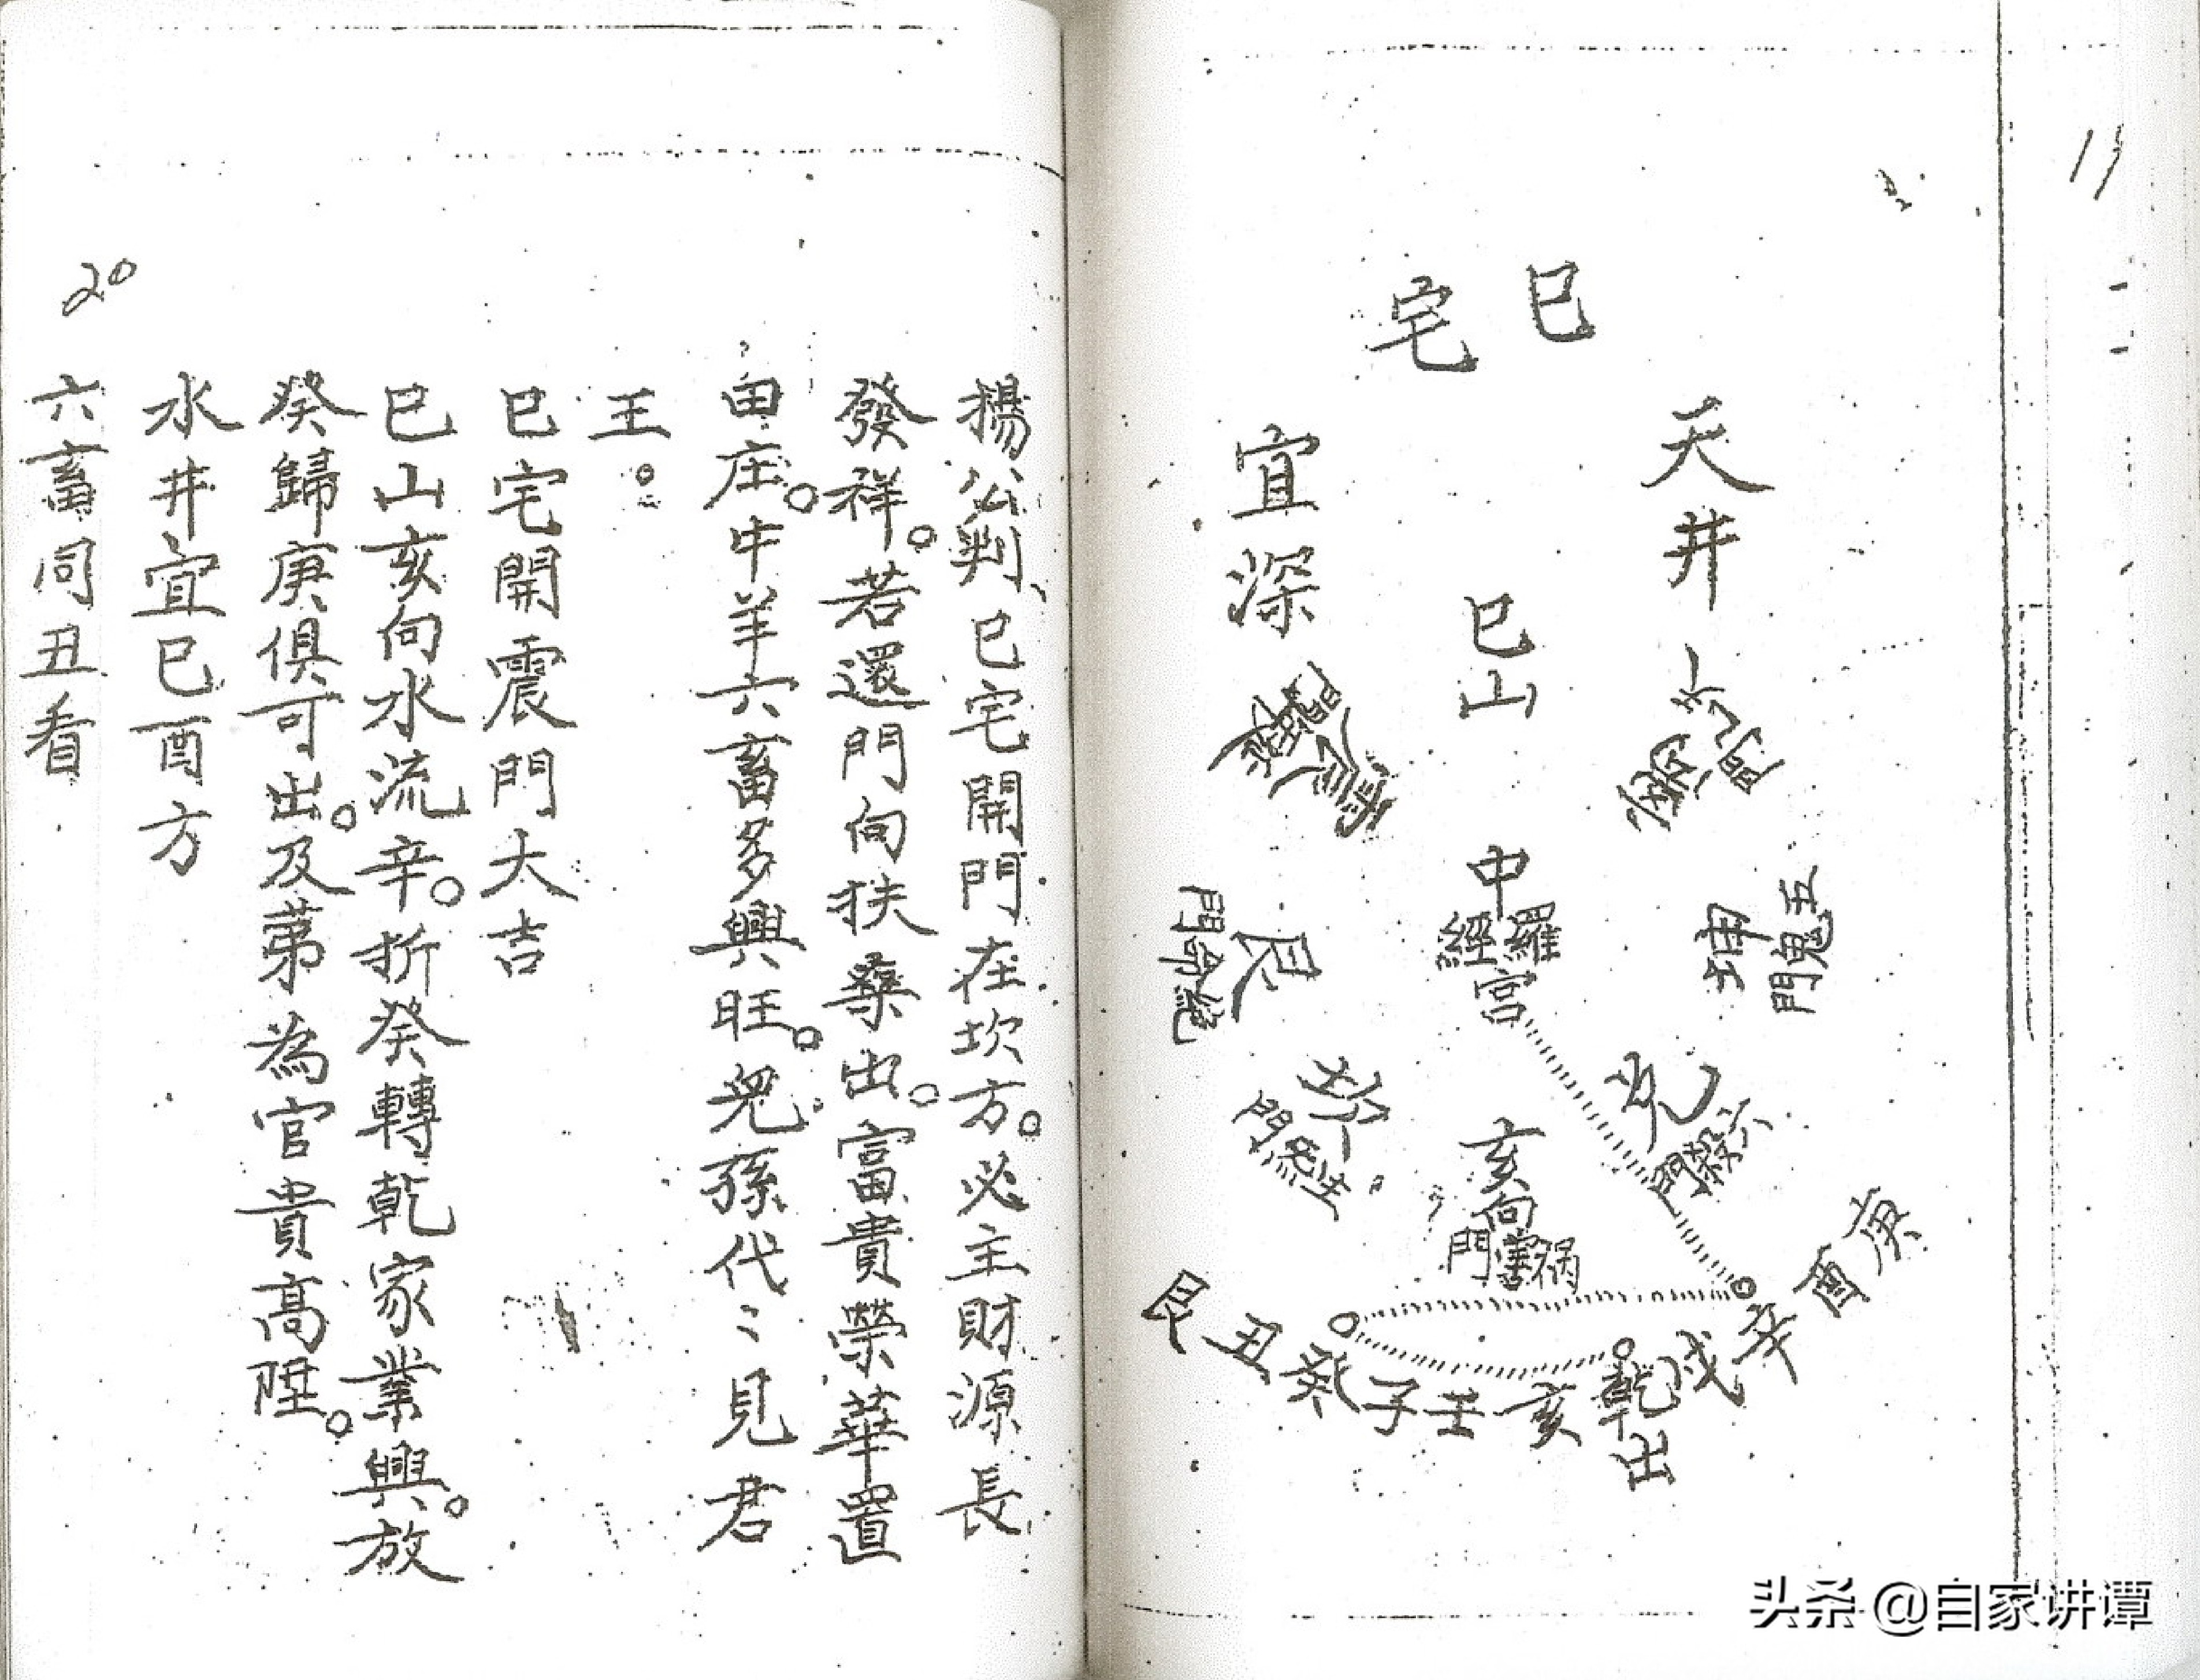 11
巳
宅
天井
宜深
巳山
離
門
震
門
中宮
羅
經
坤
五鬼
門
艮
絕命門
兌
六殺門
坎
生氣門
亥向
禍害
門
庚酉辛戌乾亥壬子癸丑艮
出
楊公判、巳宅開門在坎方。必主財源長
發祥。若還門向扶桑出。富貴榮華置
田庄。牛羊六畜多興旺。兒孫代〻見君
王。
巳宅開震門大吉
巳山亥向水流辛。折癸轉乾家業興。放
癸歸庚俱可出。及第為官貴高陞。
水井宜巳酉方
六畜同丑看
20
头杀 @自家讲谭